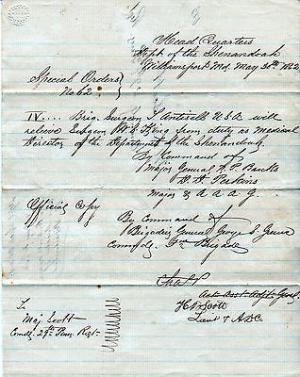 Head Quarters
Dept of the Shenandoah
Williamsport Md, May 30th 1862
Special Orders
No 62
IV.... Brig. Surgeon T Antisell U.S.A. will
relieve Surgeon W S King from duty as Medical
Director of the Department of the Shenandoah
By Command of
Major General N. P. Banks
D. D. Perkins
Major & A A A G
Official Copy
By Command of
Brigadier General George S Greene
Comndg 3rd Brigade
Act. Asst. Adjt. Genl.
H Scott
Lieut & ADC
To
Maj Scott
Comdg 29th Penn Regt